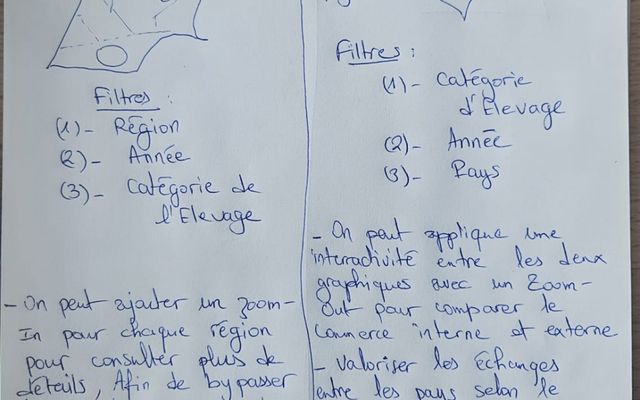 Filtres :
(1)- Région
(2)- Année
(3)- Catégorie de
l'Elevage
- On peut ajouter un zoom-
In pour chaque région
pour consulter plus de
détails, Afin de bypasser
Filtres :
(1)- Catégorie
d'Elevage
(2)- Année
(3)- Pays
- On peut applique une
interractivité entre les deux
graphiques avec un Zoom-
Out pour comparer le
Commerce interne et externe
- Valoriser les échanges
entre les pays selon le